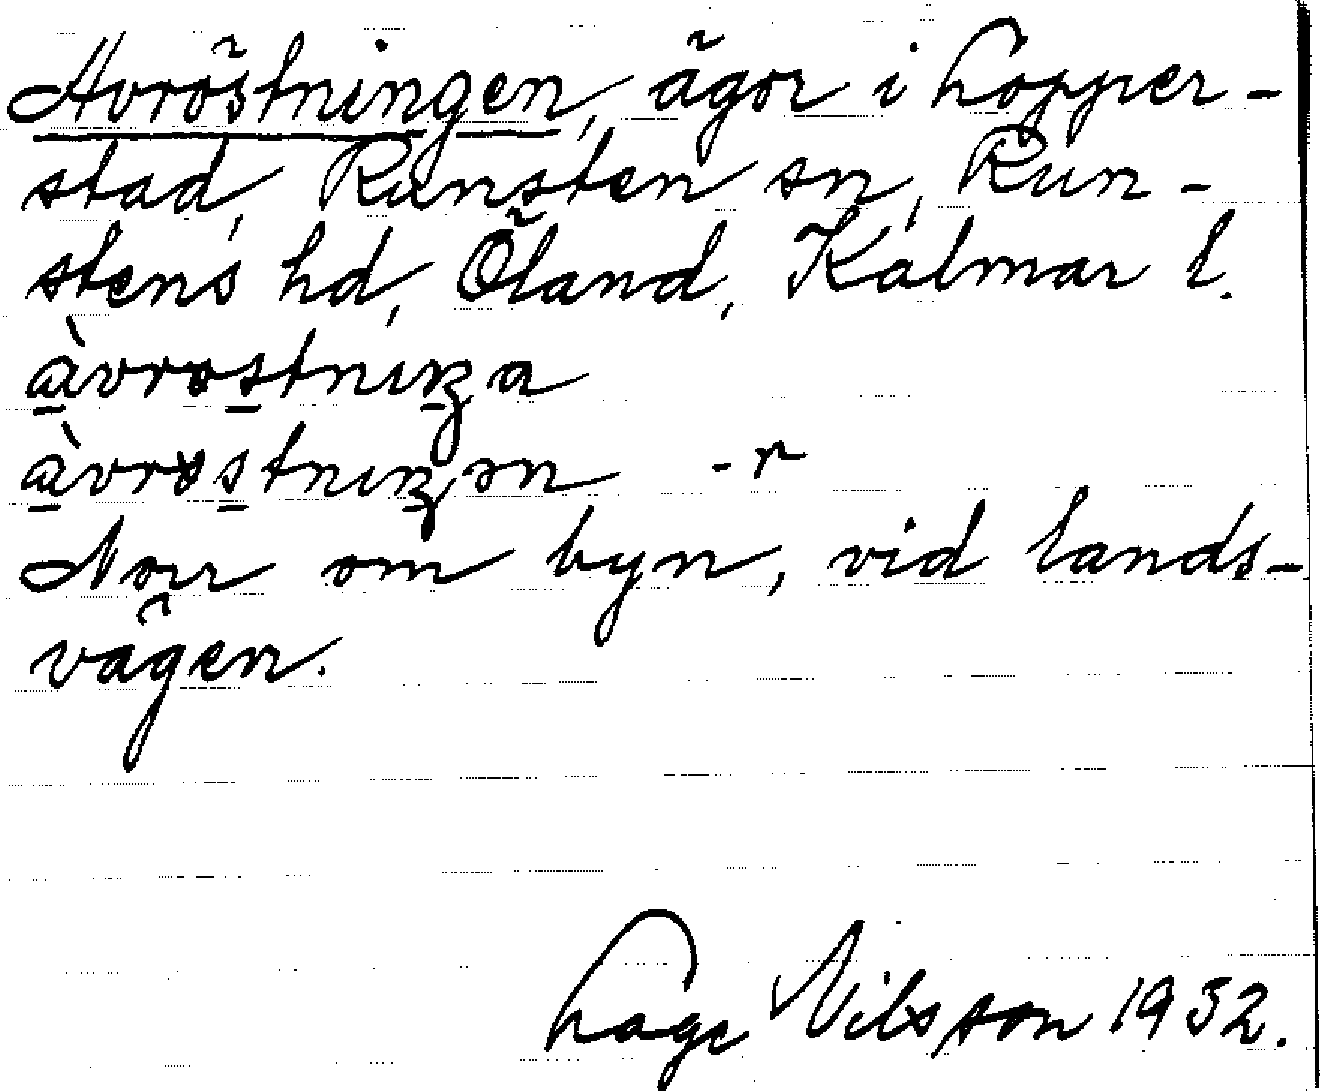 Avröstningen, ägor i Lopper-
stad, Runsten sn, Run-
stens hd, Öland, Kalmar l.
àvrostnɩŋa
àvrostnɩŋən -r
Norr om byn, vid lands-
vägen.
Lage Nilsson 1932.